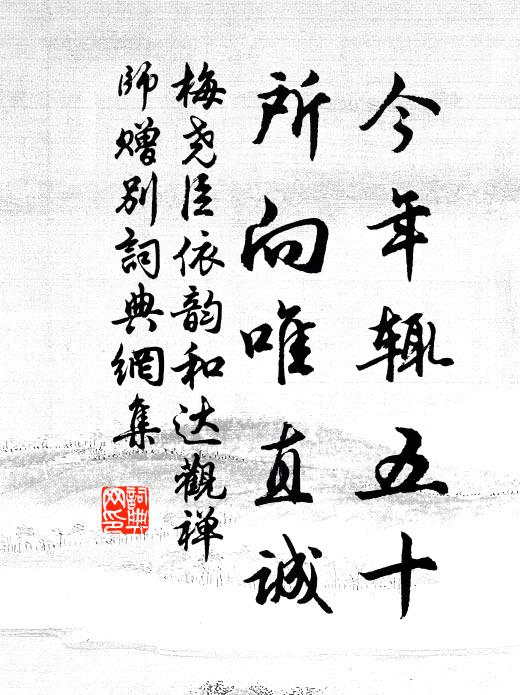 今年辄五十
所向唯直诚
梅尧臣依韵和达觀禅
师赠别詞典網集
詞典
网印